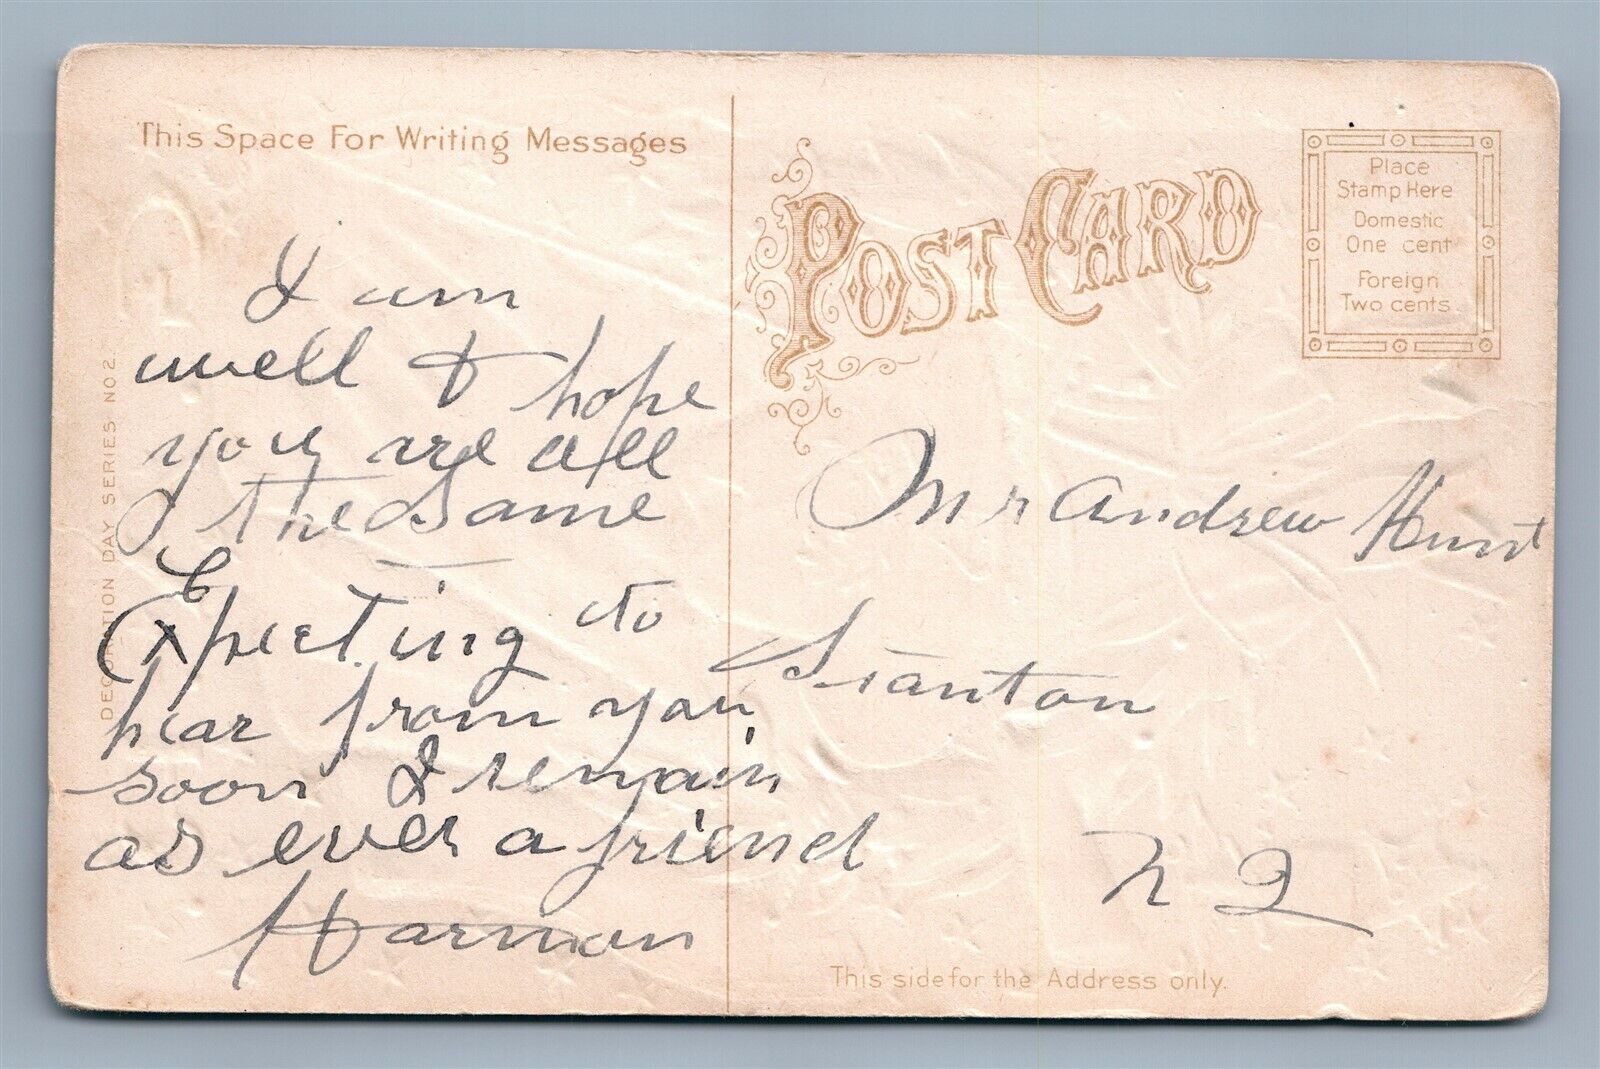 This Space For Writing Messages
I am
well & hope
you are all
the Same
Expecting to
hear from you
soon I remain
as ever a friend
Harmon
DECORATION DAY SERIES NO 2.
POST CARD
Place
Stamp Here
Domestic
One cent
Foreign
Two cents
Mr Andrew Hunt
Stanton
This side for the Address only.